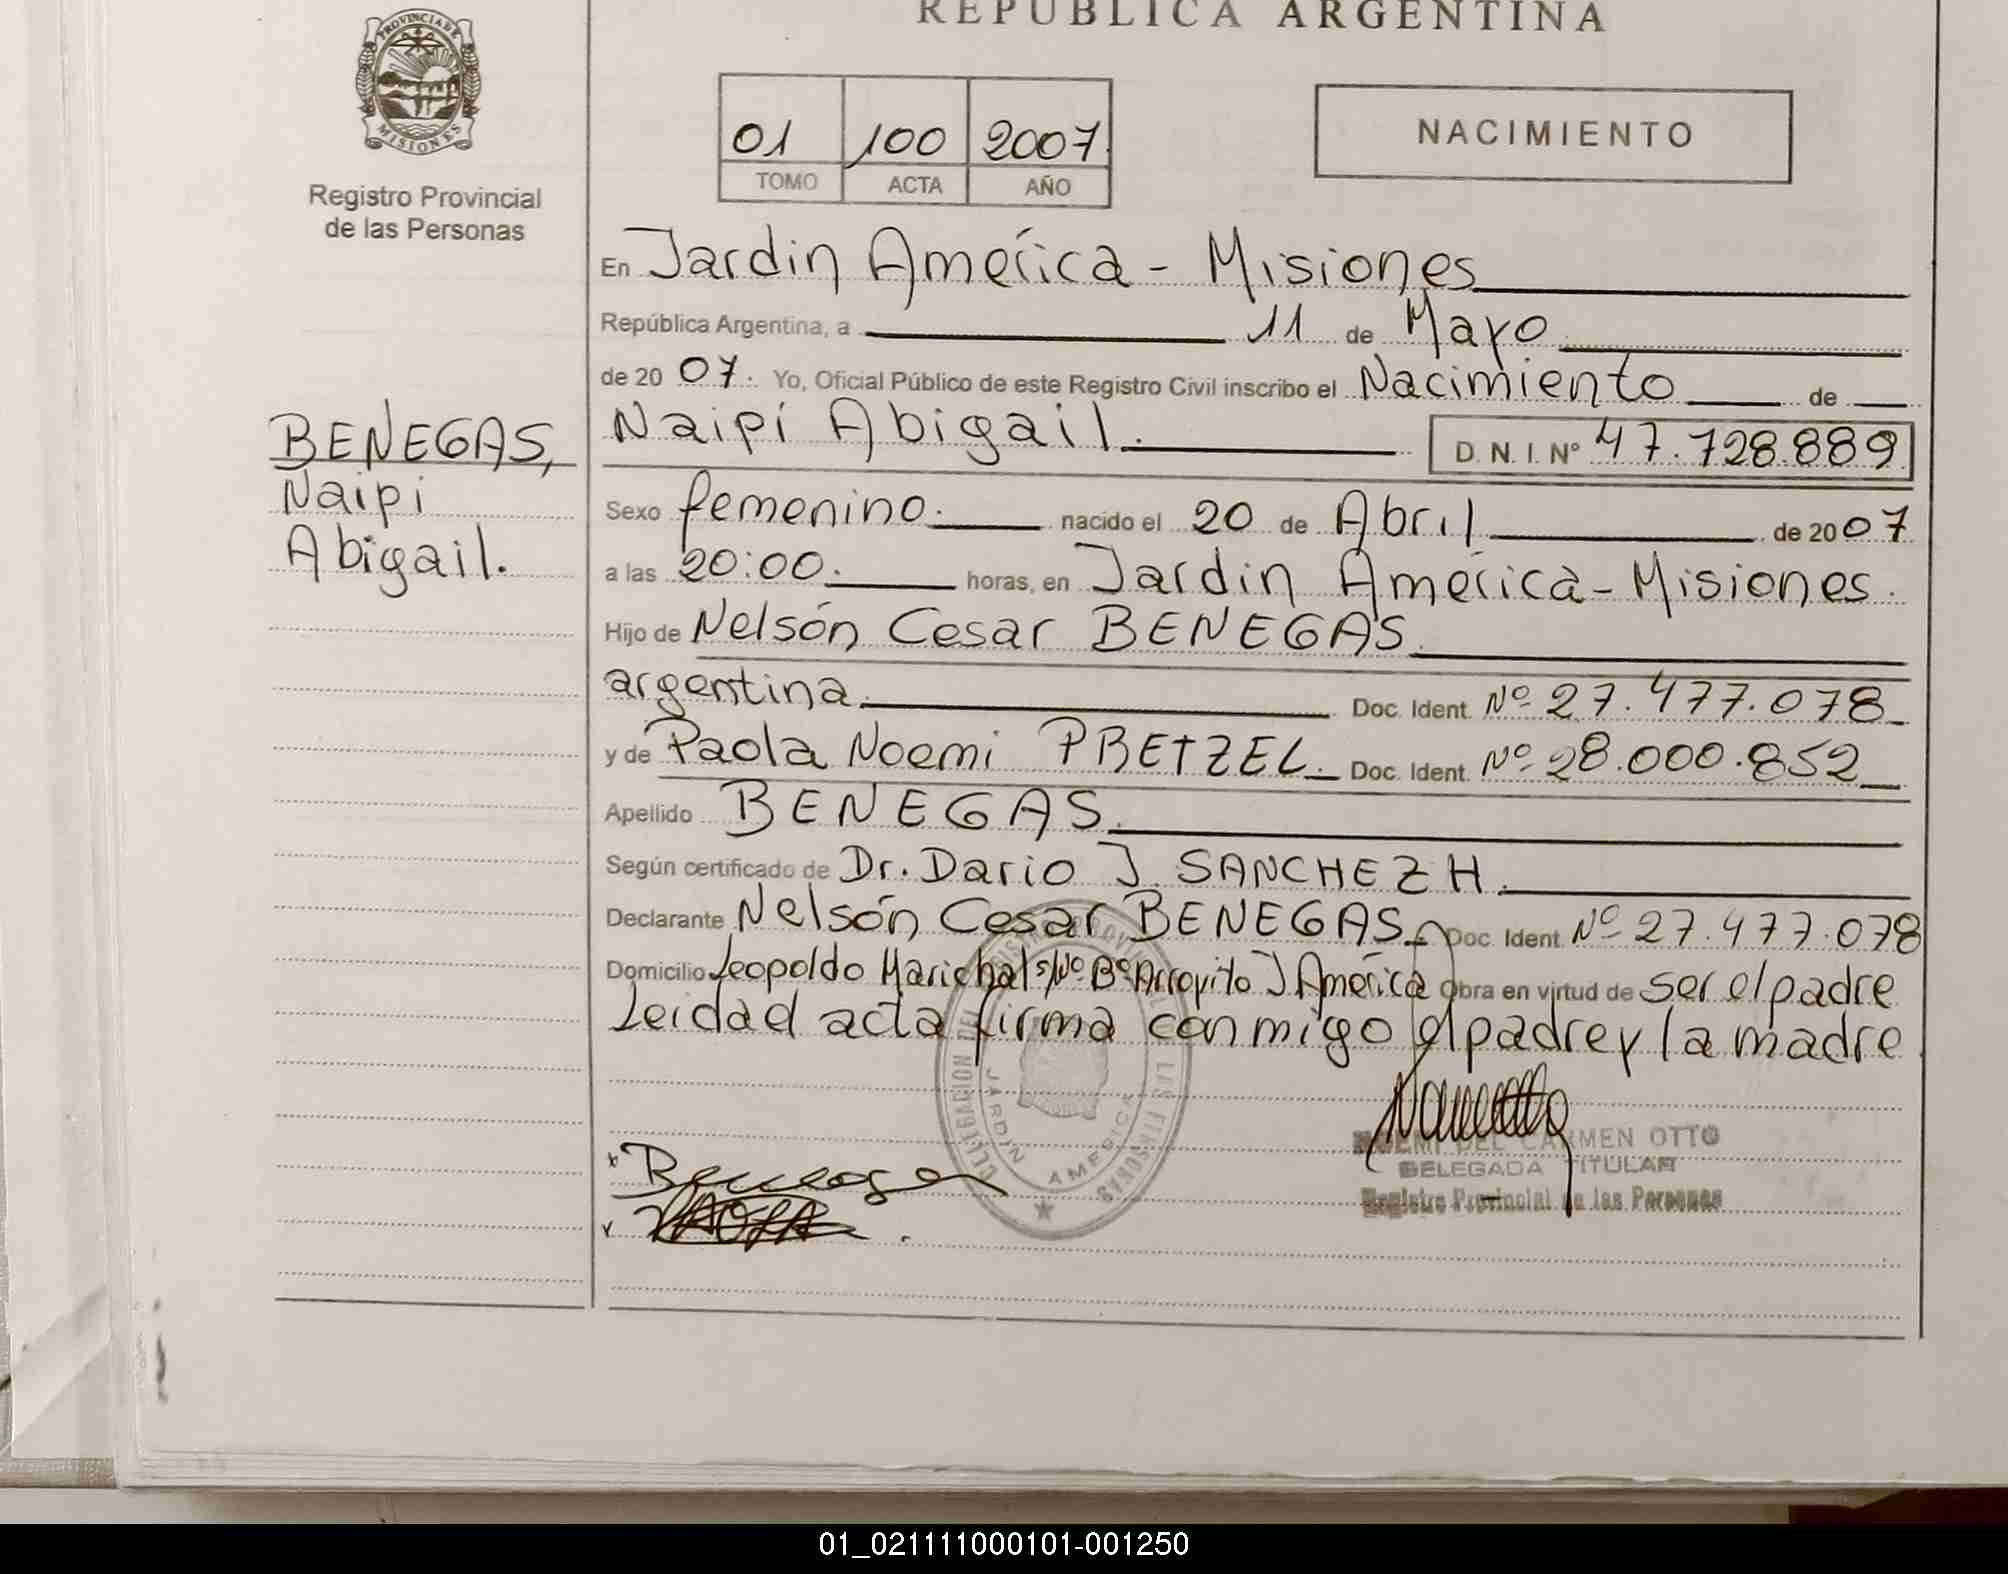 REPUBLICA ARGENTINA
PROVINCIA DE MISIONES
Registro Provincial
de las Personas
01 100 2007
TOMO ACTA AÑO
NACIMIENTO
En Jardin América - Misiones
República Argentina, a 11 de Mayo
de 20 07. Yo, Oficial Público de este Registro Civil inscribo el Nacimiento de
Naipi Abigail. D. N. I. Nº 47.728.889
BENEGAS,
Naipi
Abigail.
Sexo femenino. nacido el 20 de Abril de 20 07
a las 20:00. horas, en Jardin América - Misiones.
Hijo de Nelsón Cesar BENEGAS
argentina Doc. Ident. Nº 27.477.078
y de Paola Noemi PRETZEL. Doc. Ident. Nº 28.000.852
Apellido BENEGAS
Según certificado de Dr. Dario J. SANCHEZ H.
Declarante Nelsón Cesar BENEGAS Doc. Ident. Nº 27.477.078
Domicilio Leopoldo Marichal s/Nº Bº Arroyito J América Obra en virtud de ser el padre
Leidad acta firma conmigo el padre y la madre
DELEGACION DEL REGISTRO PROVINCIAL DE LAS PERSONAS
JARDIN AMERICA
NOEMI DEL CARMEN OTTO
DELEGADA TITULAR
Registro Provincial de las Personas
x Benegas
x PAOLA
01_021111000101-001250